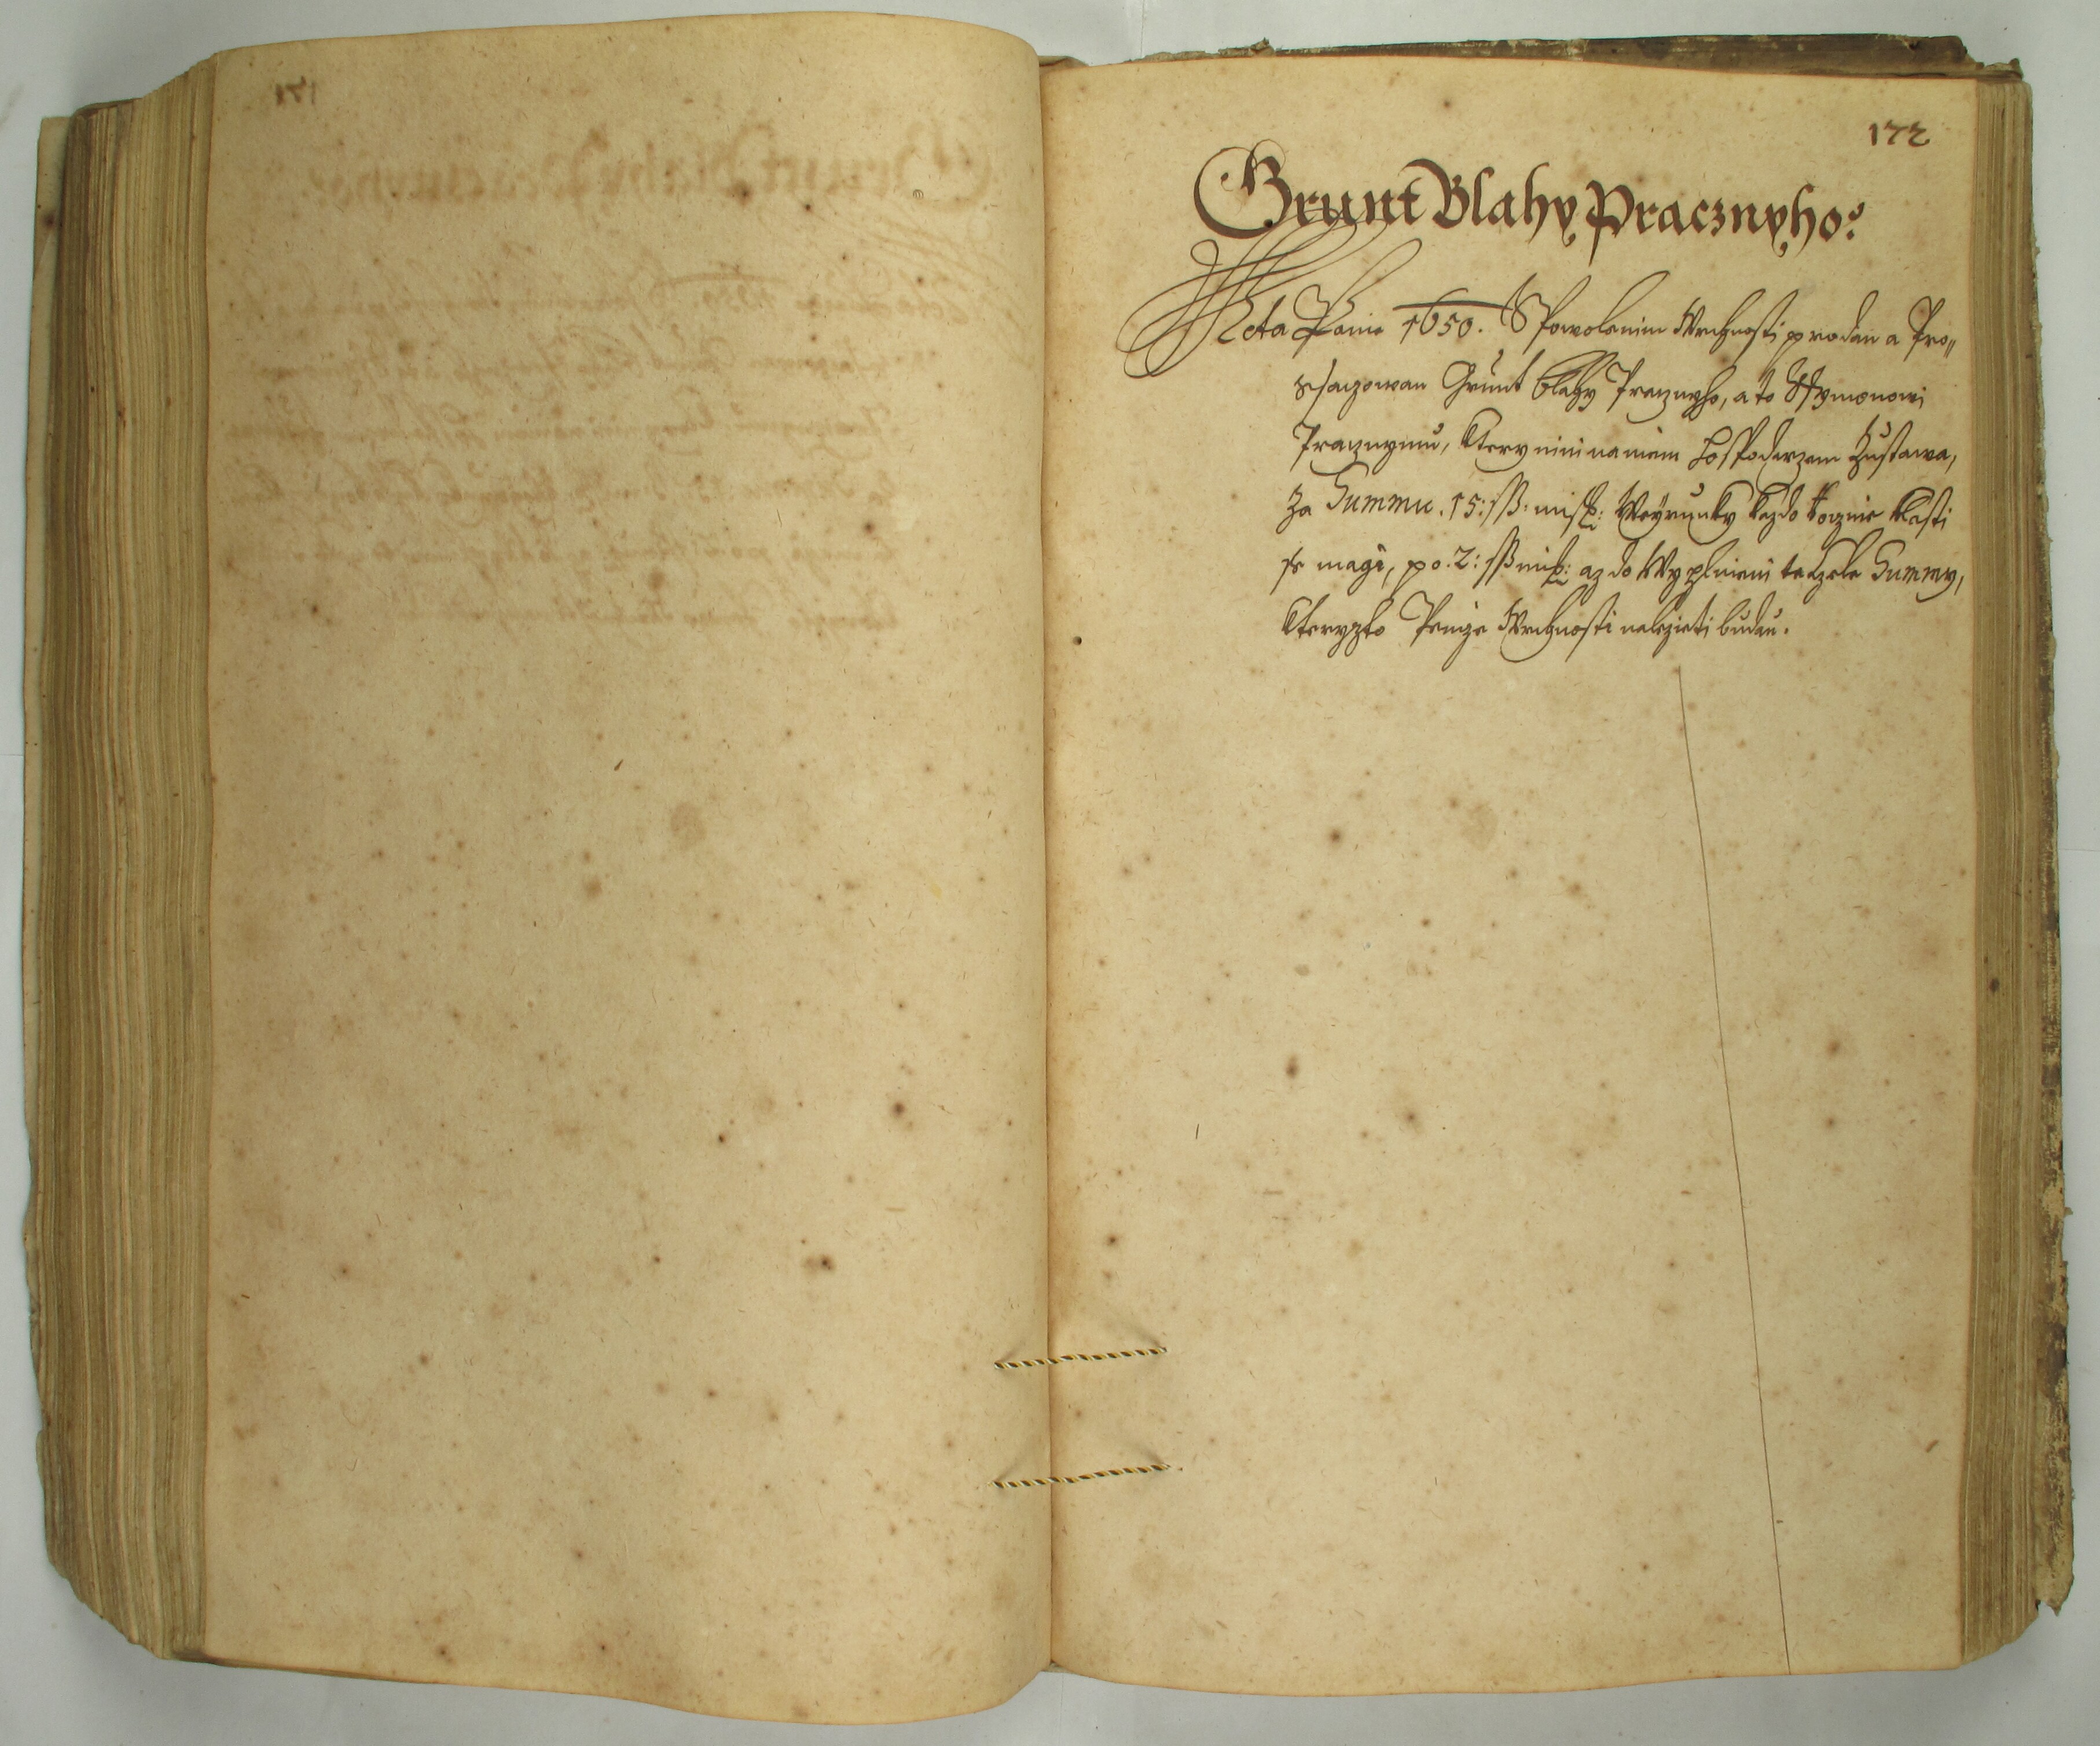 172
Grunt Blahy Pracznyho:
Leta Panie 1650. S Powolenim Wrchnosti prodan a Pro„
ssaczowan Grunt Blahy Pracznyho, a to Ssymonowi
Pracznymu, ktery nini na niem hospodarzem zustawa,
za Summu. 15: sß: miss: Weyrunky kazdo Rocznie klasti
se magi, po. 2: sß miß: az do Wyplnieni te czele Summy,
kteryzto Penize Wrchnosti nalezieti budau.